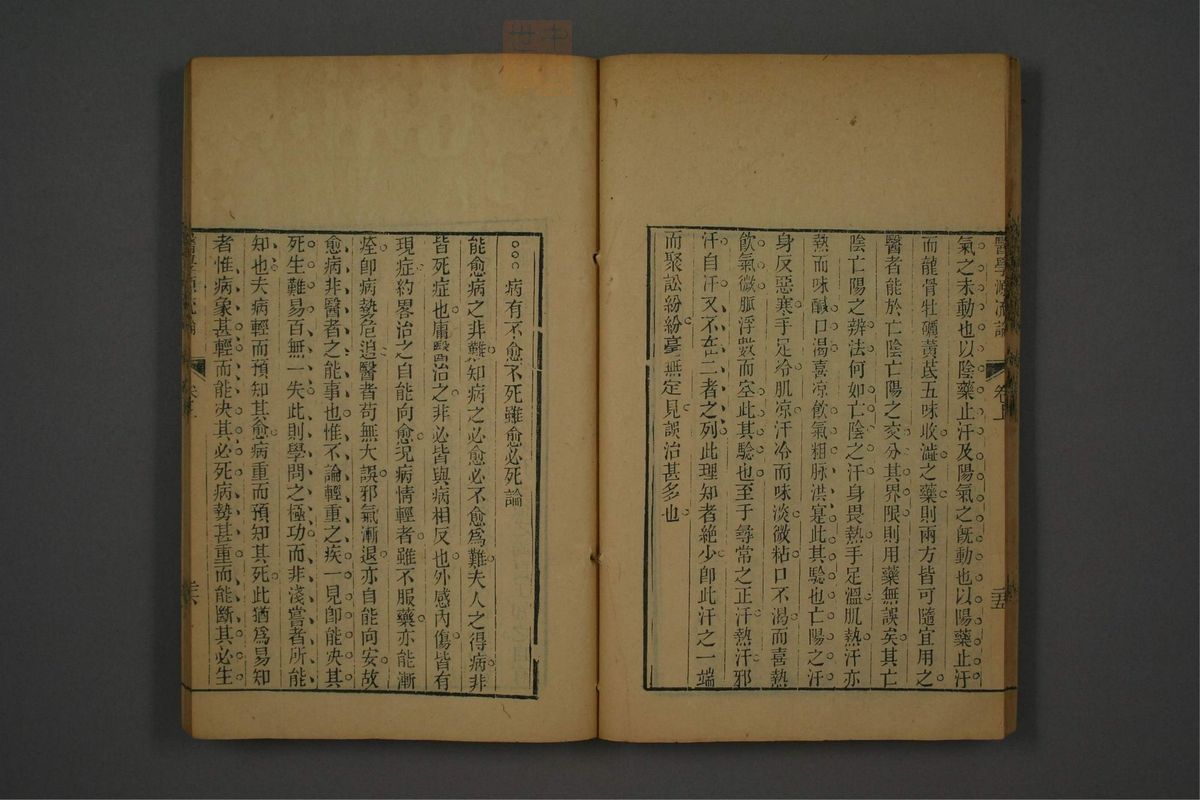 醫學源流論
卷上
氣之未動也以陰藥止汗及陽氣之旣動也以陽藥止汗
而龍骨牡礪黃芪五味收澁之藥則兩方皆可隨宜用之
醫者能於亡陰亡陽之交分其界限則用藥無誤矣其亡
陰亡陽之辨法何如亡陰之汗身畏熱手足溫肌熱汗亦
熱而味鹹口渴喜凉飮氣粗脉洪寔此其驗也亡陽之汗
身反惡寒手足冷肌凉汗冷而味淡微粘口不渴而喜熱
飮氣微脈浮數而空此其驗也至于尋常之正汗熱汗邪
汗自汗又不在二者之列此理知者絶少卽此汗之一端
而聚訟紛紛毫無定見誤治甚多也
病有不愈不死雖愈必死論
能愈病之非難知病之必愈必不愈爲難夫人之得病非
皆死症也庸醫治之非必皆與病相反也外感內傷皆有
現症約畧治之自能向愈况病情輕者雖不服藥亦能漸
痊卽病勢危迫醫者苟無大誤邪氣漸退亦自能向安故
愈病非醫者之能事也惟不論輕重之疾一見卽能决其
死生難易百無一失此則學問之極功而非淺嘗者所能
知也夫病輕而預知其愈病重而預知其死此猶爲易知
者惟病象甚輕而能决其必死病勢甚重而能斷其必生